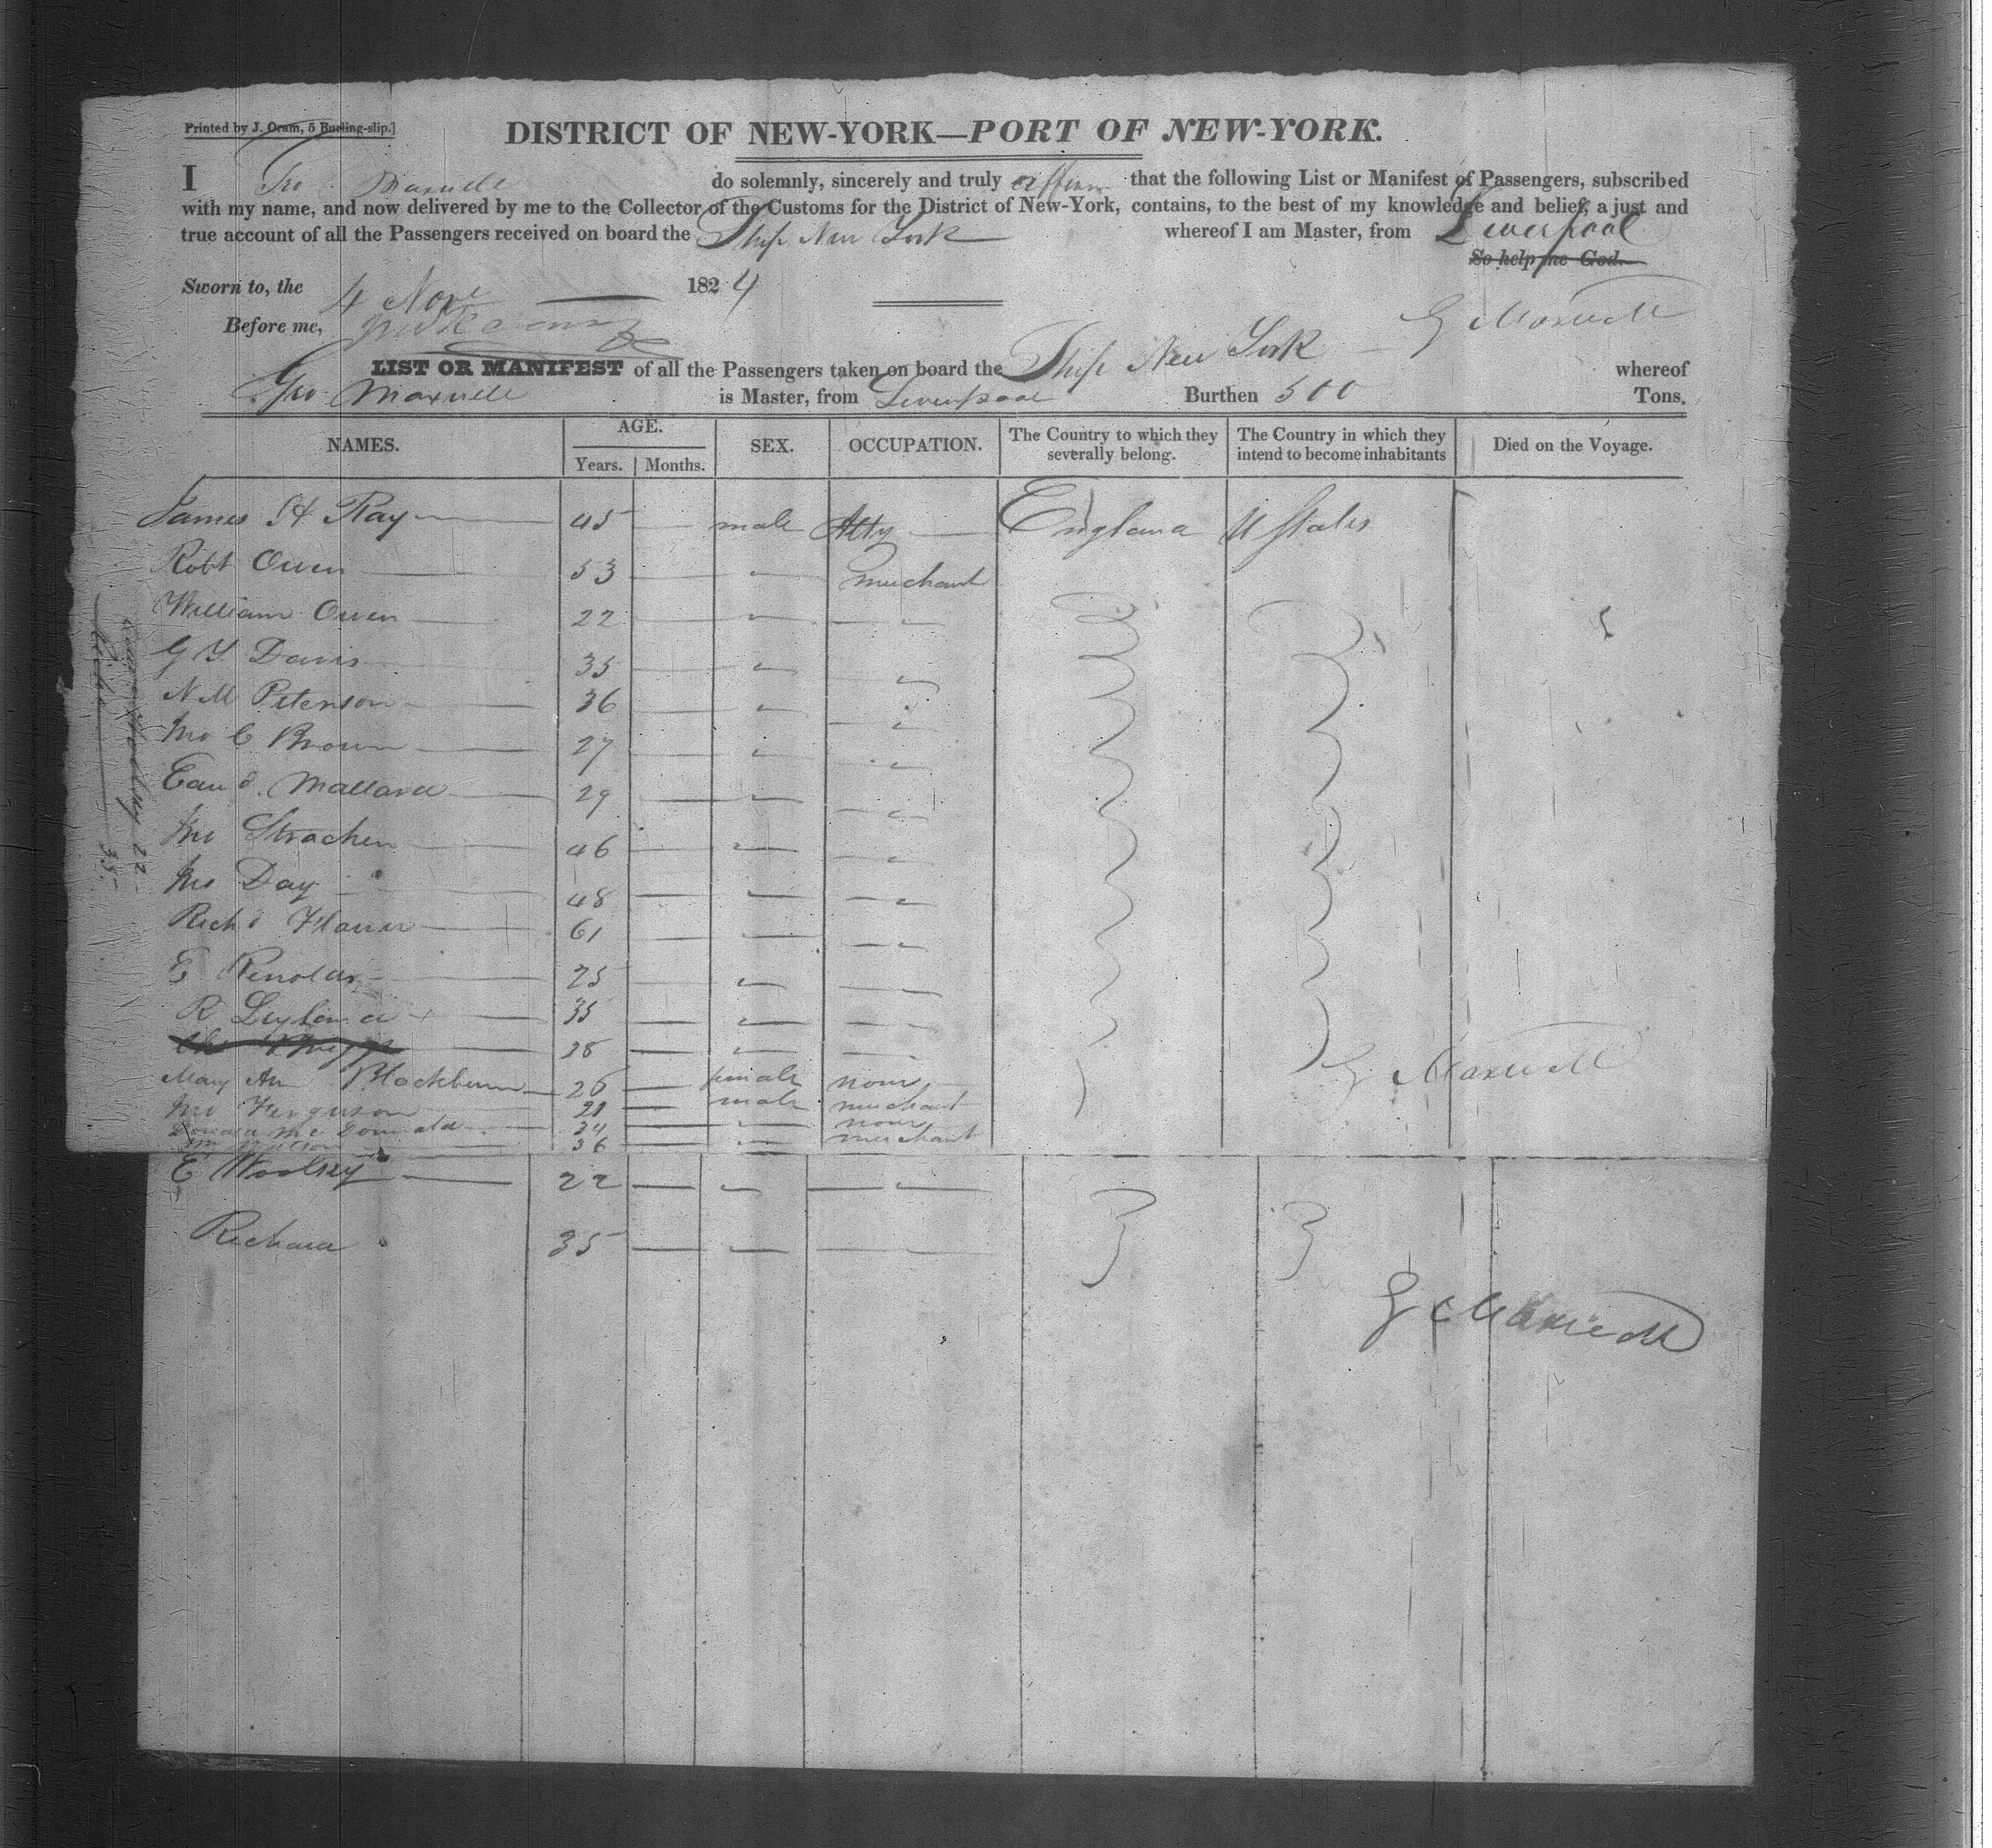 Printed by J. Oram, 5 Burling-slip.]
DISTRICT OF NEW-YORK—PORT OF NEW-YORK.
I Geo Maxwell do solemnly, sincerely and truly affirm that the following List or Manifest of Passengers, subscribed
with my name, and now delivered by me to the Collector of the Customs for the District of New-York, contains, to the best of my knowledge and belief, a just and
true account of all the Passengers received on board the Ship New York whereof I am Master, from Liverpool
So help me God.
Sworn to, the 4 Nov 1824
Before me,
G Maxwell
LIST OR MANIFEST of all the Passengers taken on board the Ship New York whereof
Geo Maxwell is Master, from Liverpool Burthen 500 Tons.
NAMES. AGE. Years. Months. SEX. OCCUPATION. The Country to which they severally belong. The Country in which they intend to become inhabitants Died on the Voyage.
James H Ray 45 male Atty England U States
Robt Owen 53 merchant
William Owen 22
G Y Davis 35
N M Peterson 36
Jno C Brown 27
Edwd. Mallard 29
Jno Strachen 46
Jno Day 48
Richd Flower 61
E Renolds 25
R Leyland 35
38
Mary An Blackburn 26 female none
Jno Ferguson 21 male merchant
Donald McDonald 34 none
Wm 36 merchant
G Maxwell
E Woolsey 22
Richard 35
G Maxwell
22
35